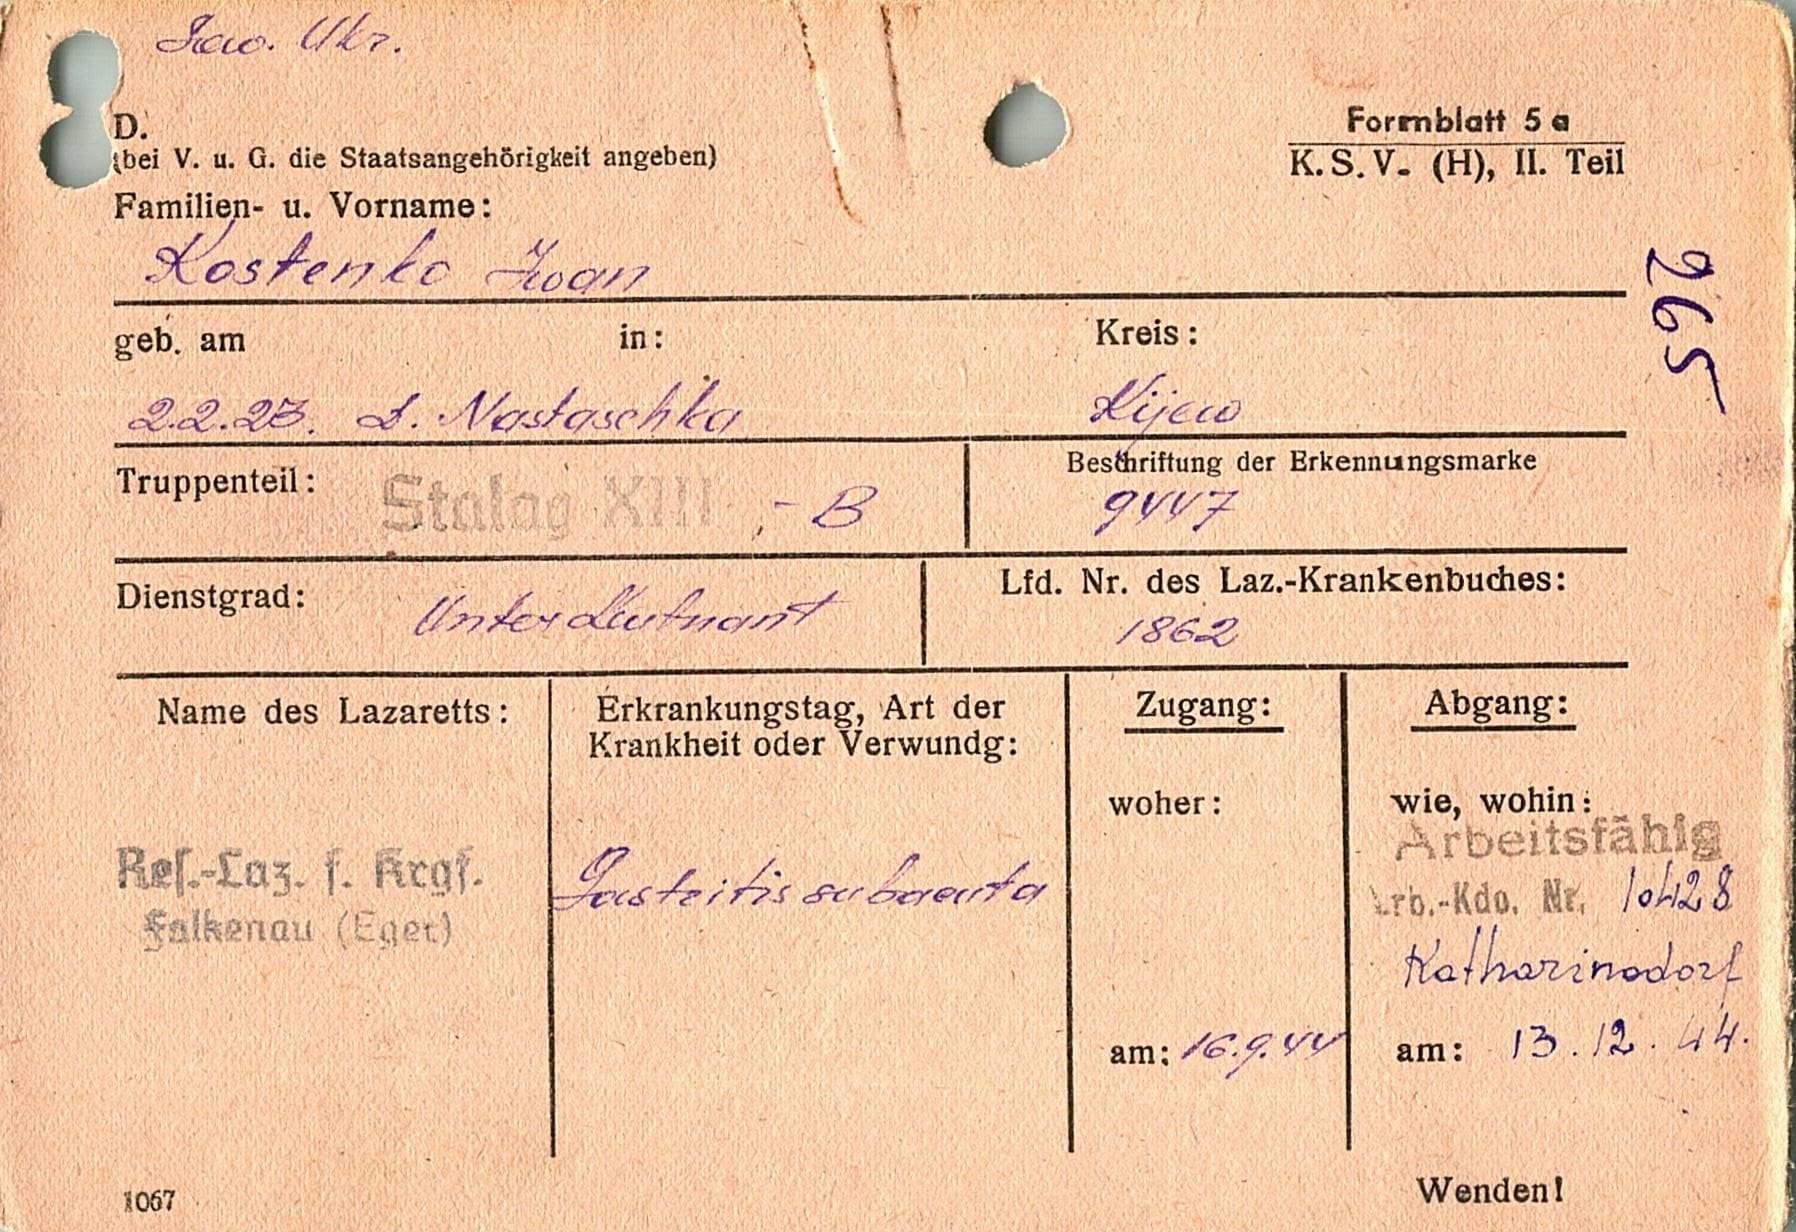 Sow. Ukr.
D.
(bei V. u. G. die Staatsangehörigkeit angeben)
Formblatt 5 a
K. S. V. (H), II. Teil
Familien- u. Vorname:
Kostenko Iwan
265
geb. am in: Kreis:
2.2.23. D. Nastaschka Kijew
Truppenteil: Stalag XIII - B
Beschriftung der Erkennungsmarke
9447
Dienstgrad: Unterleutnant
Lfd. Nr. des Laz.-Krankenbuches:
1862
Name des Lazaretts:
Res.-Laz. f. Krgf.
Falkenau (Eger)
Erkrankungstag, Art der
Krankheit oder Verwundg:
Gastritis subacuta
Zugang:
woher:
am: 16.9.44
Abgang:
wie, wohin:
Arbeitsfähig
Arb.-Kdo. Nr. 10428
Katharinadorf
am: 13.12.44.
1067
Wenden!